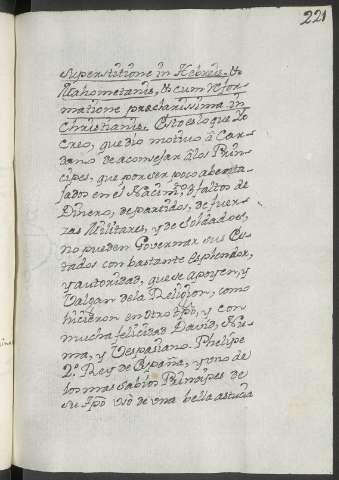 221
superstitione in Hebreis, &
Mahometanis, & cum refor-
matione præclarissima in
Christianis. Esto es lo que Yo
creo, que dio motivo à Car-
dano de aconsejar à los Prin-
cipes, que por ser poco aberita-
jados en el Nacimto, ò faltos de
Dinero, de partidos, de fuer-
zas Militares, y de Soldadoes,
no pueden Governar sus Es-
tados con bastante Esplendor,
y autoridad, que se apoyen, y
Valgan de la Religion, como
hicieron en otro tpō, y con
mucha felicidad David, Nu-
ma, y Vespasiano. Phelipe
2.º Rey de España, y uno de
los mas Sabios Principes de
su tpō usò de una bella astucia